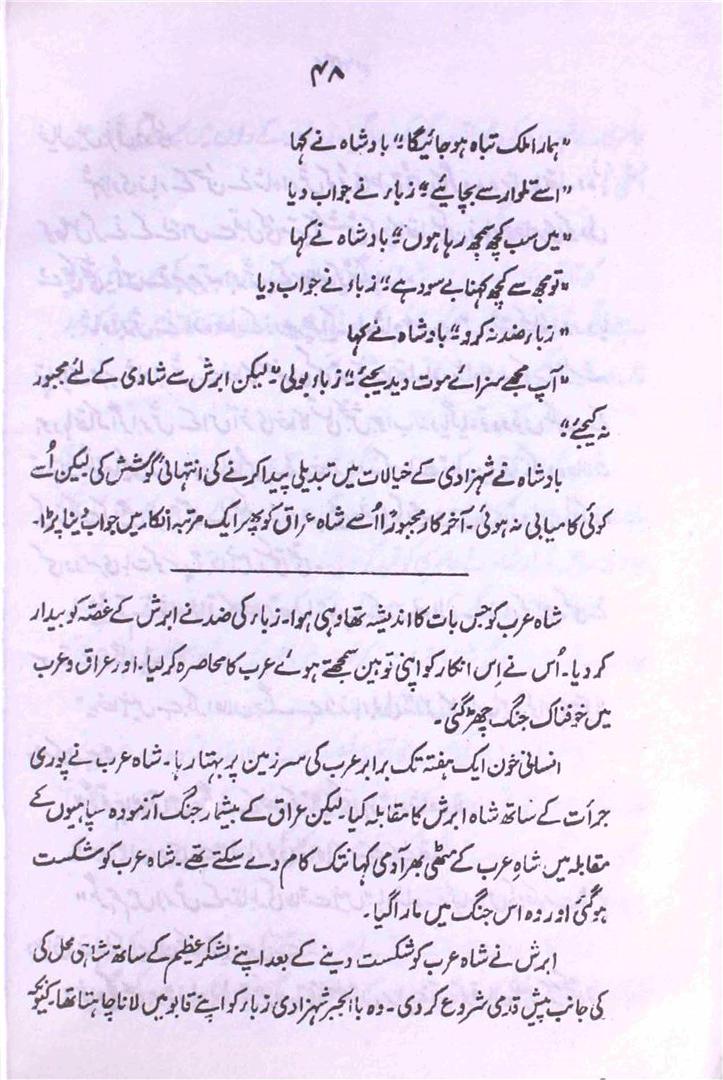 ۴۸
"ہمارا ملک تباہ ہو جائیگا" بادشاہ نے کہا
"اسے تلوار سے بچائیے" زباء نے جواب دیا
"میں سب کچھ سمجھ رہا ہوں" بادشاہ نے کہا
"تو مجھ سے کچھ کہنا بے سود ہے" زباء نے جواب دیا
"زباء ضد نہ کرو" بادشاہ نے کہا
"آپ مجھے سزائے موت دیدیجیئے" زباء بولی "لیکن ابرش سے شادی کے لئے مجبور
نہ کیجیئے"
بادشاہ نے شہزادی کے خیالات میں تبدیلی پیدا کرنے کی انتہائی کوشش کی لیکن اُسے
کوئی کامیابی نہ ہوئی۔ آخر کار مجبوراً اُسے شاہ عراق کو پھر ایک مرتبہ انکار میں جواب دینا پڑا۔
شاہ عرب کو جس بات کا اندیشہ تھا وہی ہوا۔ زباء کی ضد نے ابرش کے غصّہ کو بیدار
کر دیا۔ اُس نے اِس انکار کو اپنی توہین سمجھتے ہوئے عرب کا محاصرہ کر لیا۔ اور عراق و عرب
میں خوفناک جنگ چھڑ گئی۔
انسانی خون ایک ہفتہ تک برابر عرب کی سرزمین پر بہتا رہا۔ شاہ عرب نے پوری
جرأت کے ساتھ شاہ ابرش کا مقابلہ کیا۔ لیکن عراق کے بیشمار جنگ آزمودہ سپاہیوں کے
مقابلہ میں شاہِ عرب کے مٹھی بھر آدمی کہا نتک کام دے سکتے تھے۔ شاہ عرب کو شکست
ہو گئی اور وہ اس جنگ میں مارا گیا۔
ابرش نے شاہ عرب کو شکست دینے کے بعد اپنے لشکرِ عظیم کے ساتھ شاہی محل کی
کی جانب پیش قدمی شروع کر دی۔ وہ باالجبر شہزادی زباء کو اپنے قابو میں لانا چاہتا تھا۔ کیونکہ